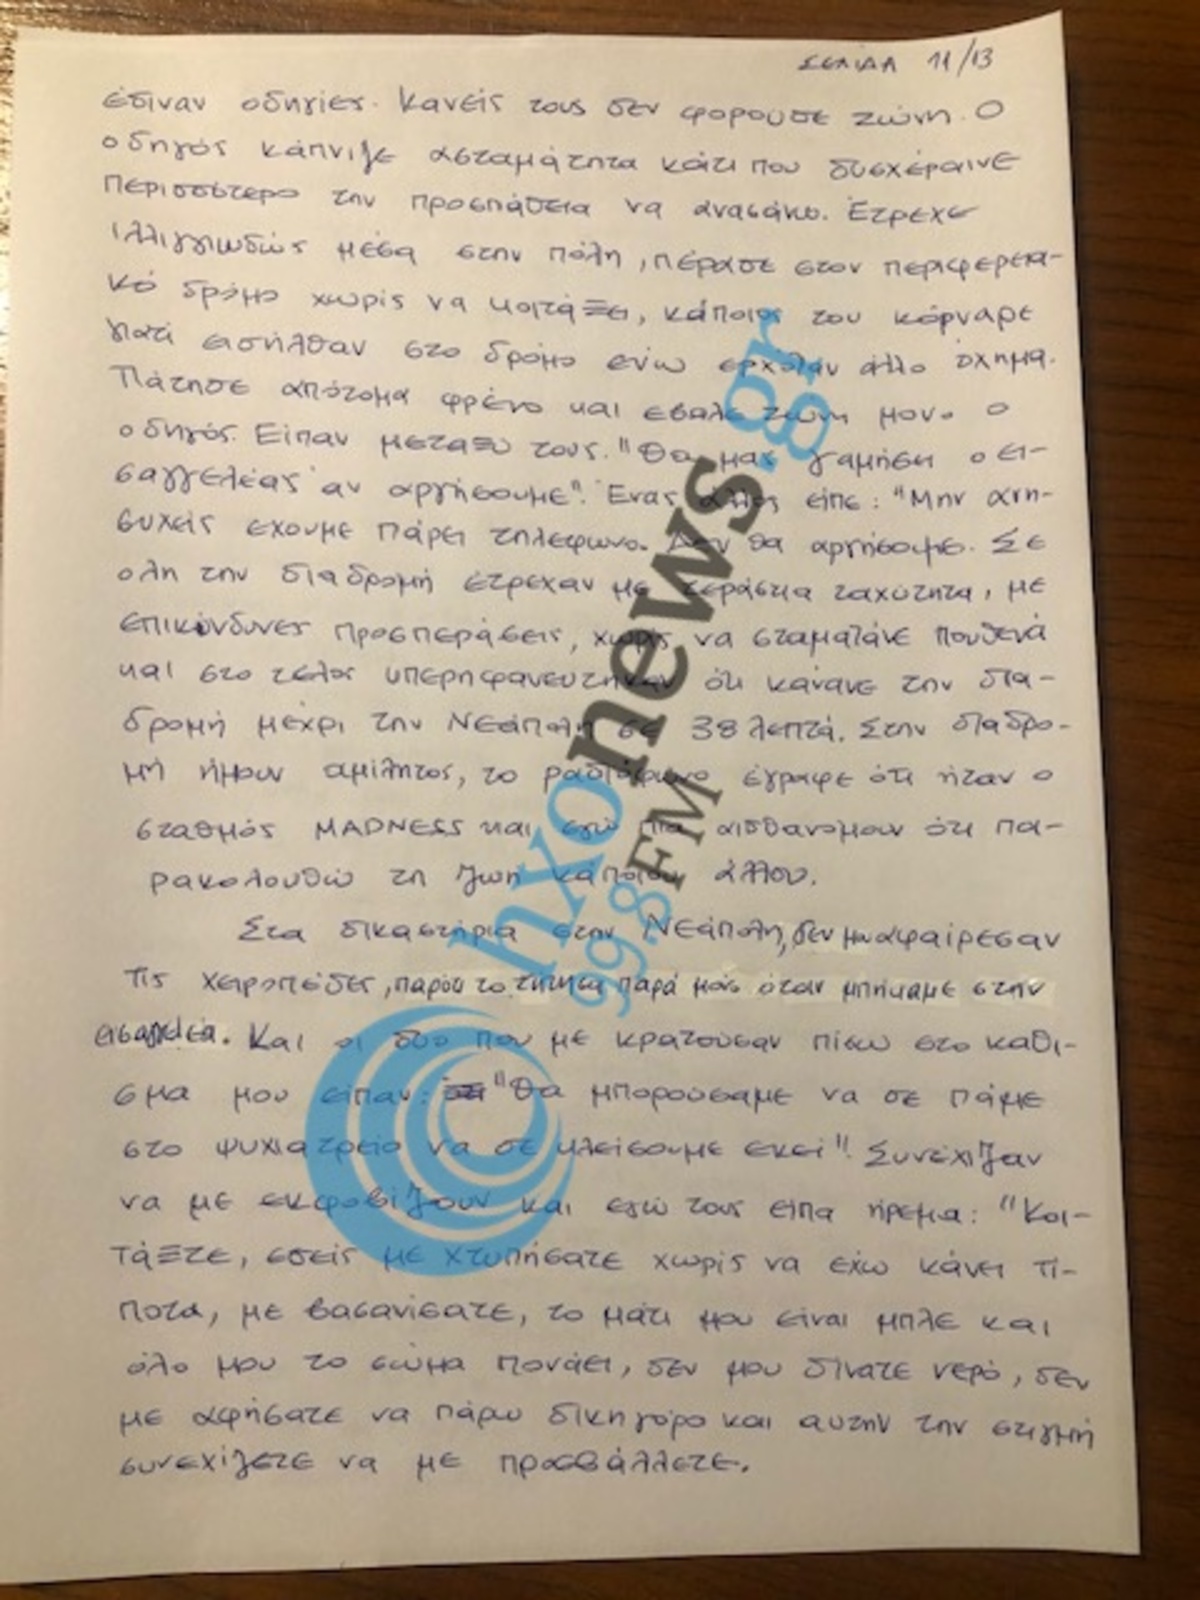 ΣΕΛΙΔΑ 11/13
έδιναν οδηγίες. Κανείς τους δεν φορούσε ζώνη. Ο
οδηγός κάπνιζε ασταμάτητα κάτι που δυσχέραινε
περισσότερο την προσπάθεια να ανασάνω. Έτρεχε
ιλλιγγιωδώς μέσα στην πόλη, πέρασε στον περιφερεια-
κό δρόμο χωρίς να κοιτάξει, κάποιος του κόρναρε
γιατί εισήλθαν στο δρόμο ενώ ερχόταν άλλο όχημα.
Πάτησε απότομα φρένο και έβαλε ζώνη μονο ο
οδηγός. Είπαν μεταξύ τους. "Θα μας γαμήσει ο ει-
σαγγελέας αν αργήσουμε". Ένας άλλος είπε: "Μην ανη-
συχείς έχουμε πάρει τηλέφωνο. Δεν θα αργήσουμε. Σε
ολη την διαδρομή έτρεχαν με τεράστια ταχύτητα, με
επικίνδυνες προσπεράσεις, χωρίς να σταματάνε πουθενά
και στο τέλος υπερηφανευτηκαν ότι κάνανε την δια-
δρομή μέχρι την Νεάπολη σε 38 λεπτά. Στην διαδρο-
μή ήμουν αμίλητος, το ραδιόφωνο έγραφε ότι ήταν ο
σταθμός MADNESS και εγώ πια αισθανόμουν ότι πα-
ρακολουθώ τη ζωη κάποιου άλλου.
Στα δικαστήρια στην Νεάπολη, δεν μου αφαίρεσαν
τις χειροπέδες, παρότι το ζήτησα παρά μόνο όταν μπήκαμε στην
εισαγγελεία. Και οι δύο που με κρατούσαν πίσω στο καθι-
σμα μου είπαν: "Θα μπορούσαμε να σε πάμε
στο ψυχιατρείο να σε κλείσουμε εκεί". Συνέχιζαν
να με εκφοβίζουν και εγώ τους είπα ήρεμα: "Κοι-
τάξτε, εσείς με χτυπήσατε χωρίς να έχω κάνει τί-
ποτα, με βασανίσατε, το μάτι μου είναι μπλε και
όλο μου το σώμα πονάει, δεν μου δίνατε νερό, δεν
με αφήσατε να πάρω δικηγόρο και αυτην την στιγμή
συνεχίζετε να με προσβάλλετε.
hxonews.gr
99.8FM